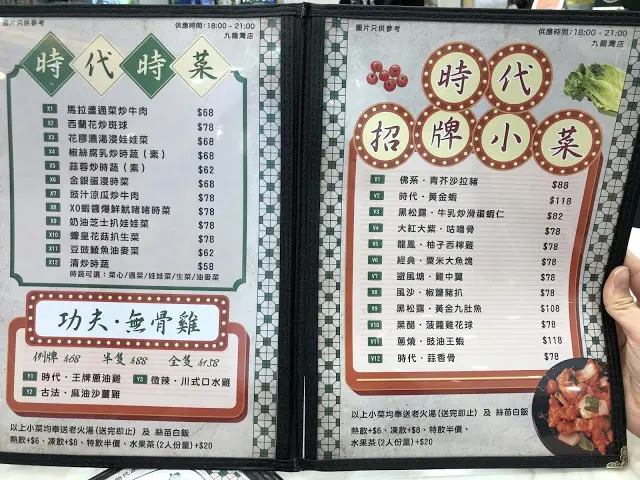 圖片只供參考
供應時間:18:00 - 21:00
九龍灣店
時代時菜
X1 馬拉盞通菜炒牛肉 $68
X2 西蘭花炒斑球 $78
X3 花膠濃湯浸娃娃菜 $68
X4 椒絲腐乳炒時蔬(素) $68
X5 蒜蓉炒時蔬(素) $62
X6 金銀蛋浸時菜 $68
X7 豉汁涼瓜炒牛肉 $78
X8 XO蝦醬爆鮮魷啫啫時菜 $78
X9 奶油芝士扒娃娃菜 $78
X10 蠔皇花菇扒生菜 $78
X11 豆豉鯪魚油麥菜 $62
X12 清炒時蔬 $58
時蔬可選:菜心/通菜/娃娃菜/生菜/油麥菜
功夫·無骨雞
例牌 $68 半隻 $88 全隻 $158
Y1 時代·王牌蔥油雞 Y3 微辣·川式口水雞
Y2 古法·麻油沙薑雞
以上小菜均奉送老火湯(送完即止) 及 絲苗白飯
熱飲+$6、凍飲+$8、特飲半價、水果茶(2人份量)+$20
圖片只供參考
供應時間:18:00 - 21:00
九龍灣店
時代
招牌小菜
V1 佛系·青芥沙拉豬 $88
V2 時代·黃金蝦 $118
V3 黑松露·牛乳炒滑蛋蝦仁 $82
V4 大紅大紫·咕嚕骨 $78
V5 龍鳳·柚子西檸雞 $78
V6 經典·粟米大魚塊 $78
V7 避風塘·雞中翼 $78
V8 風沙·椒鹽豬扒 $78
V9 黑松露·黃金九肚魚 $108
V10 黑醋·菠蘿雞花球 $78
V11 蔥燒·豉油王蝦 $118
V12 時代·蒜香骨 $78
以上小菜均奉送老火湯(送完即止) 及 絲苗白飯
熱飲+$6、凍飲+$8、特飲半價、
水果茶(2人份量)+$20